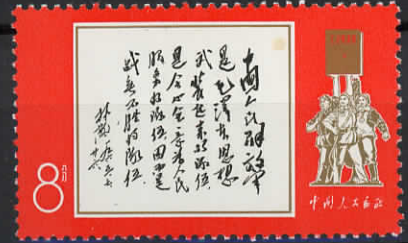 中国人民解放军
是毛泽东思想
武装起来的队伍，
是全心全意为人民
服务的队伍，因而是
战无不胜的队伍
林彪
8
中国人民邮政